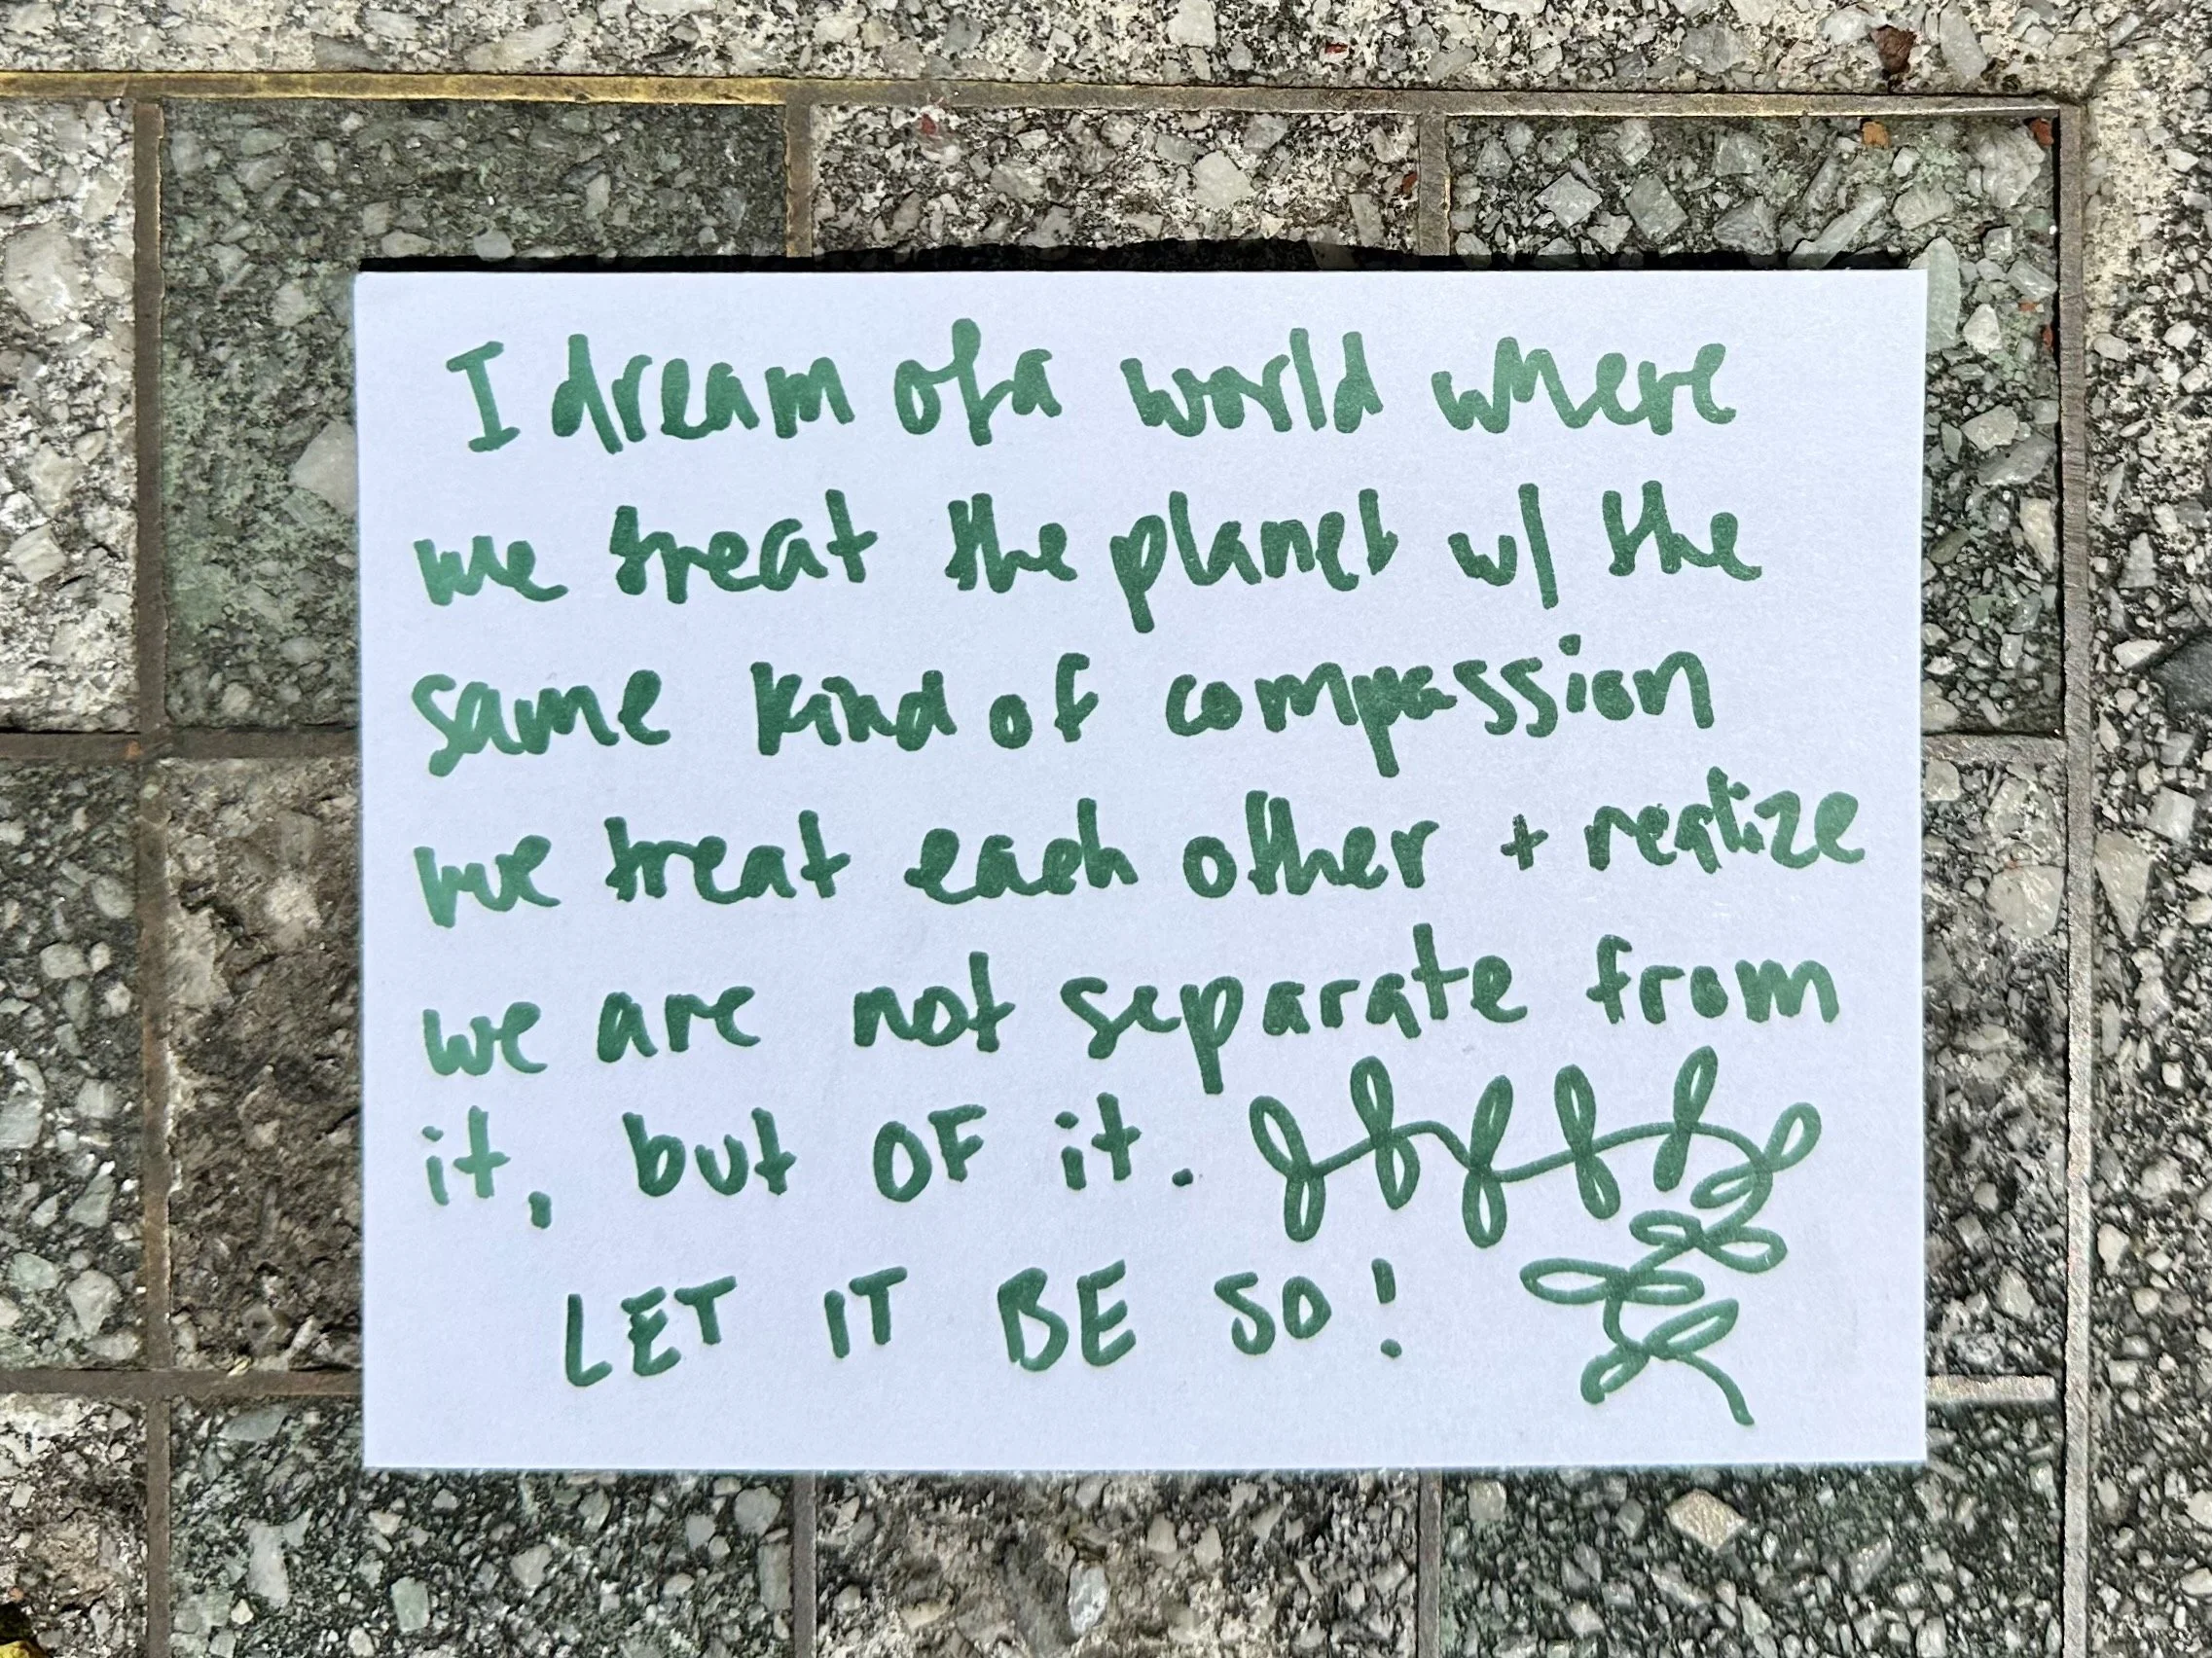 I dream of a world where
we treat the planet w/ the
same kind of compassion
we treat each other + realize
we are not separate from
it, but OF it.
LET IT BE SO!